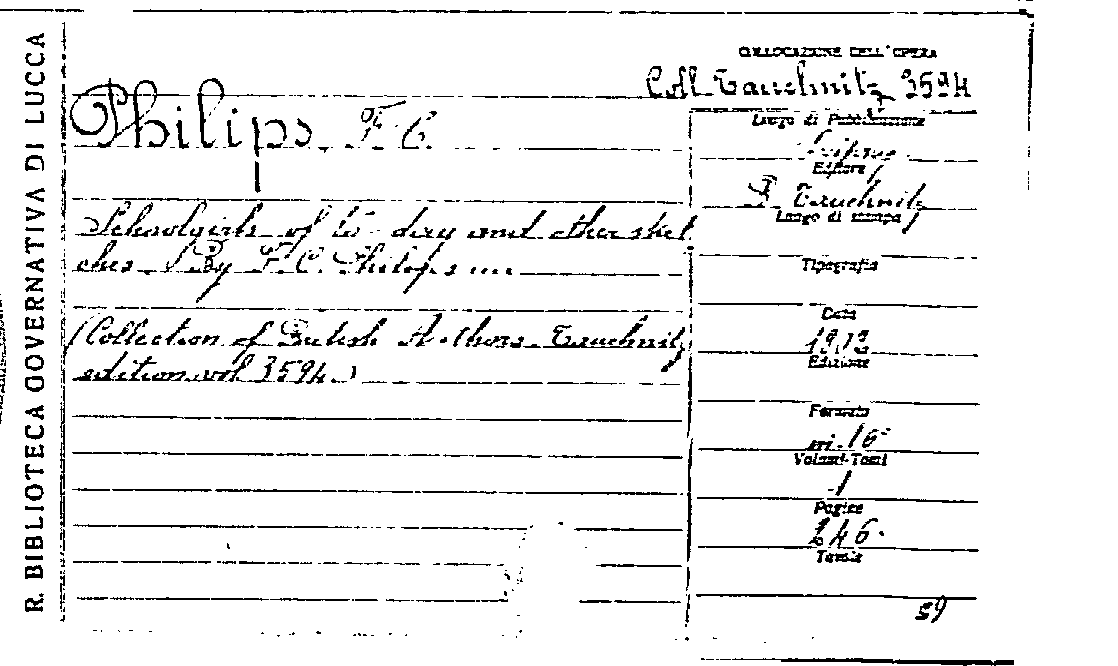 R. BIBLIOTECA GOVERNATIVA DI LUCCA
COLLOCAZIONE DELL'OPERA
Coll. Tauchnitz 3594
Philips F. C.
Schoolgirls of to-day and other sket
ches. By F. C. Philips
(Collection of British Authors. Tauchnitz
edition vol 3594.)
Luogo di Pubblicazione
Leipzig
Editore
B. Tauchnitz
Luogo di stampa
Tipografia
Data
Edizione
Formato
in. 16°
Volumi-Tomi
1
Pagine
246.
Tavole
59